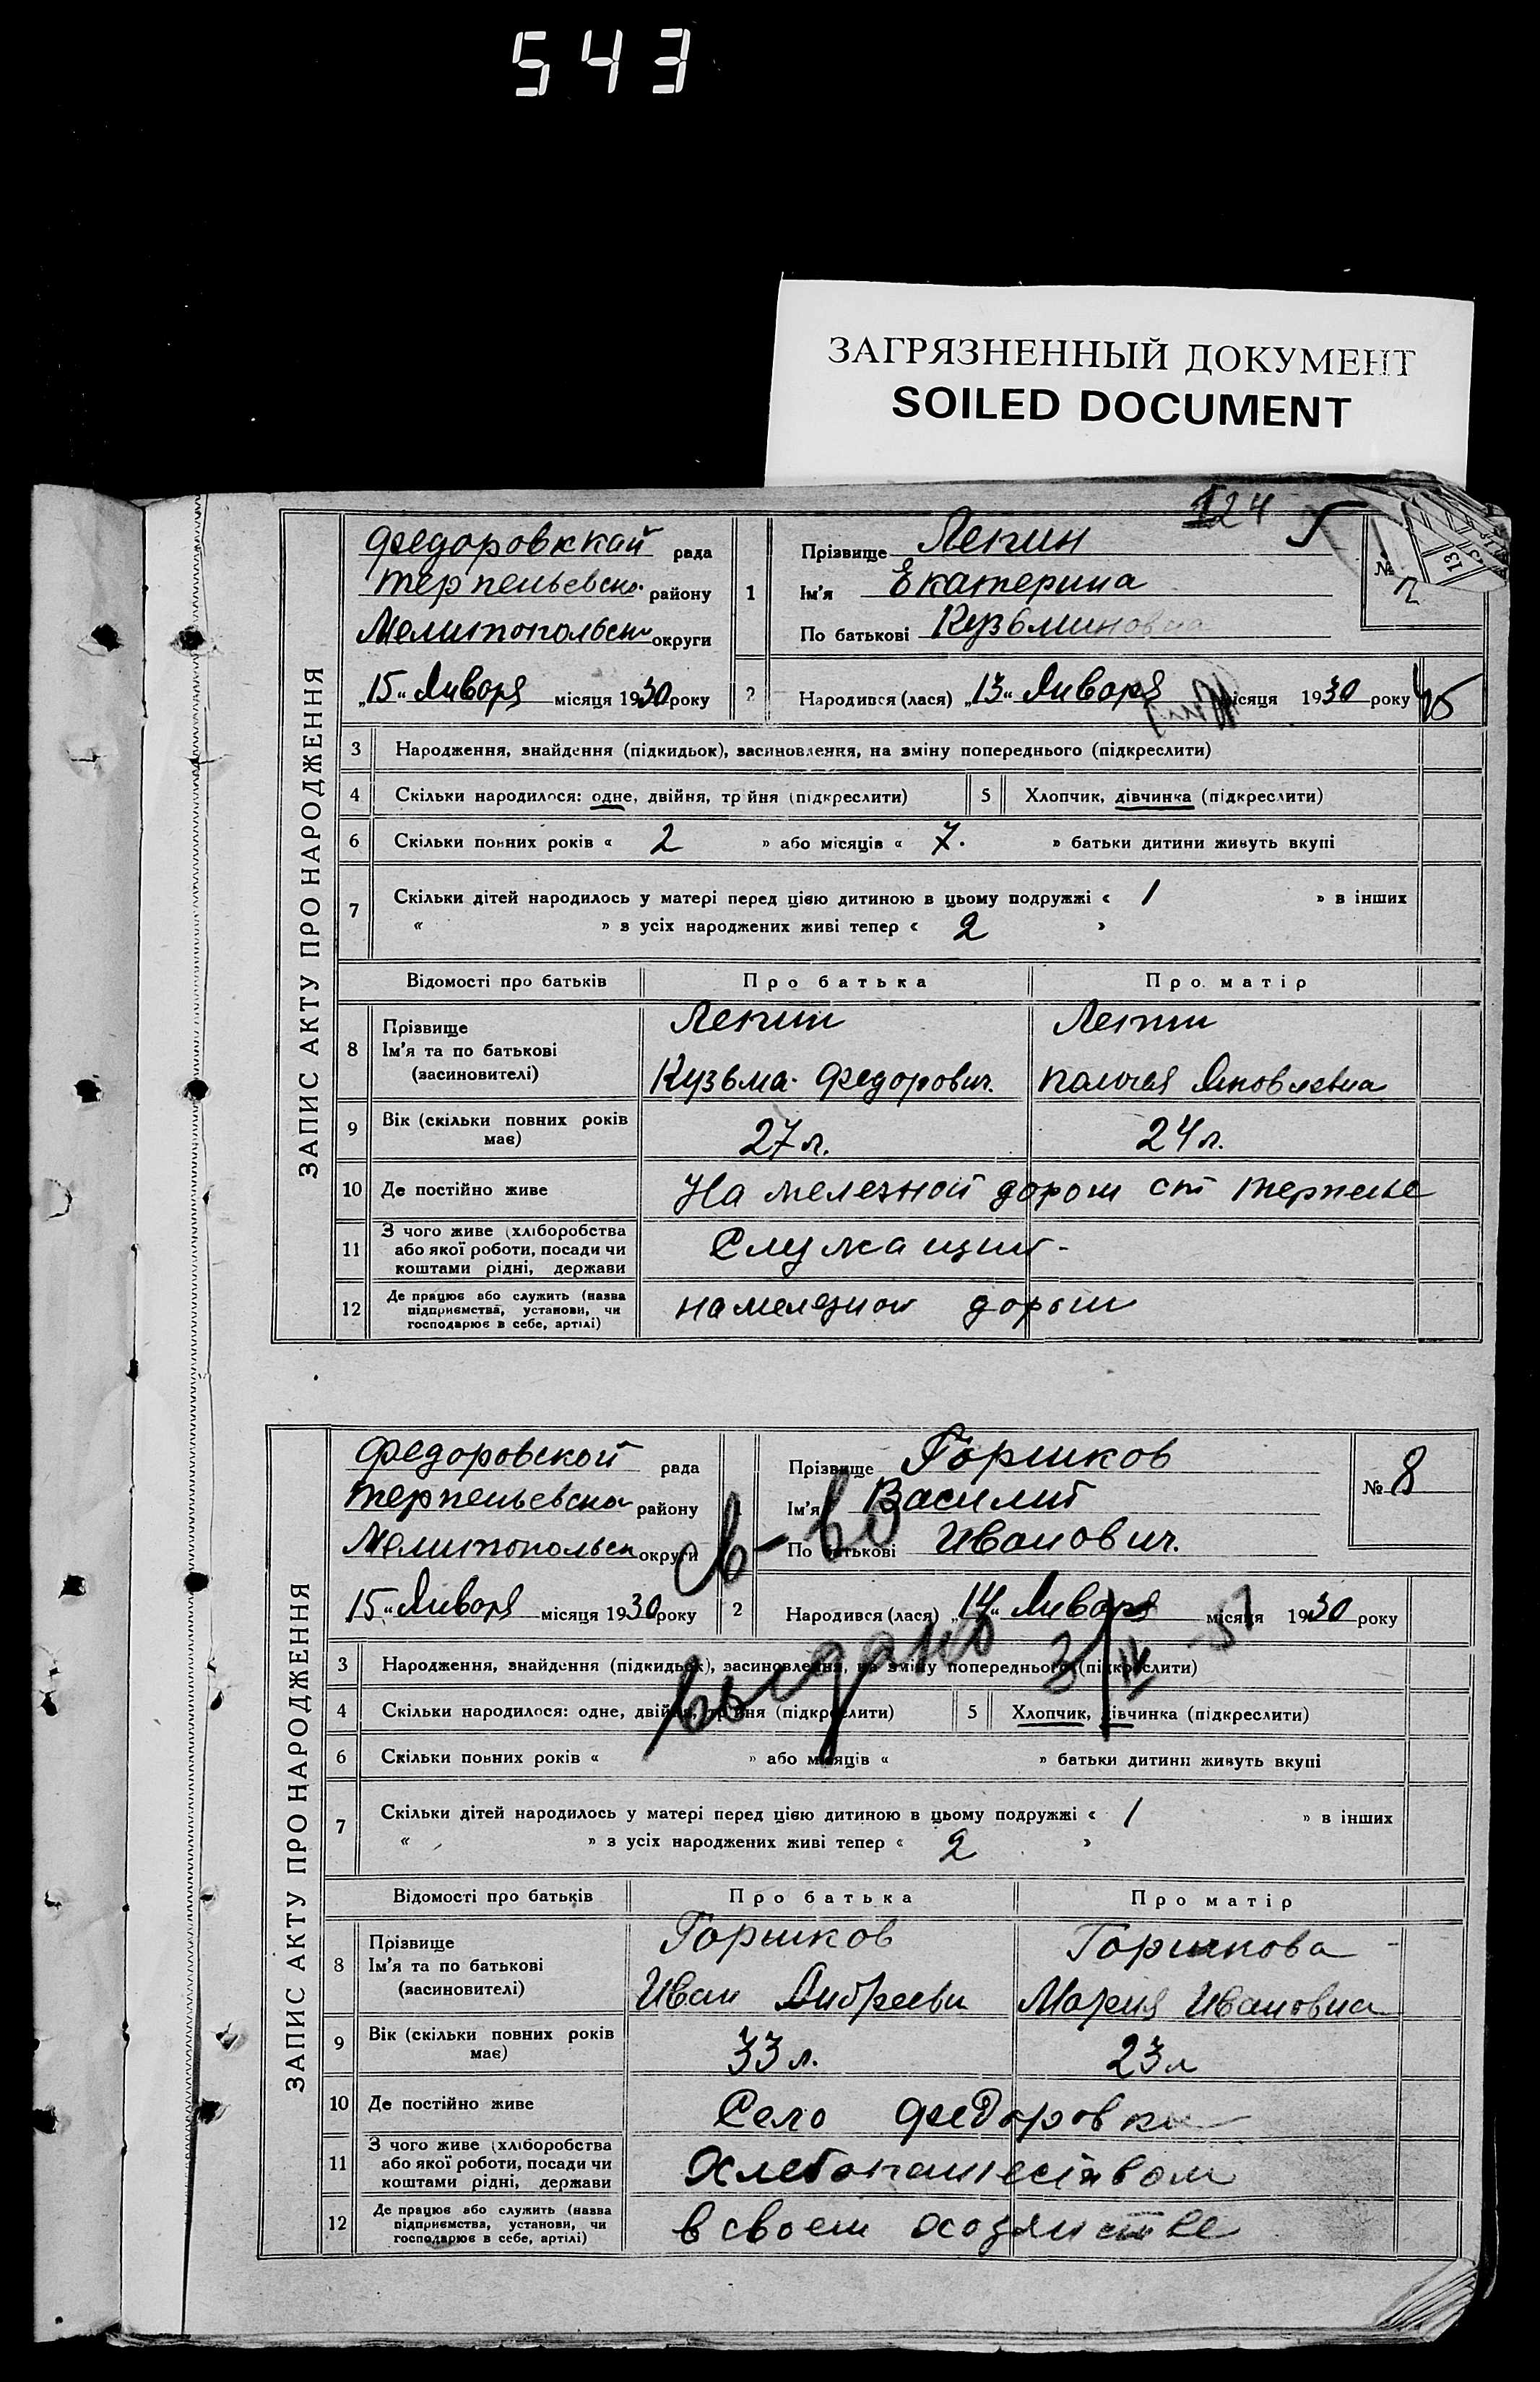 543
ЗАГРЯЗНЕННЫЙ ДОКУМЕНТ
SOILED DOCUMENT
124
ЗАПИС АКТУ ПРО НАРОДЖЕННЯ
Федоровккай рада
Терпеньевско. району
Мелитопольски округи
„15“ Января місяця 1930 року
1
Прізвище Лепин
Ім'я Екатерина
По батькові Кузьминовна
№
2 Народився (лася) „13“ Января місяця 1930 року
3 Народження, знайдення (підкидьок), засиновлення, на зміну попереднього (підкреслити)
4 Скільки народилося: одне, двійня, трійня (підкреслити) 5 Хлопчик, дівчинка (підкреслити)
6 Скільки повних років « 2 » або місяців « 7. » батьки дитини живуть вкупі
7 Скільки дітей народилось у матері перед цією дитиною в цьому подружжі « 1 » в інших
« » з усіх народжених живі тепер « 2 »
Відомості про батьків Про батька Про матір
8 Прізвище Лепин Лепин
Ім'я та по батькові
(засиновителі) Кузьма Федорович. Яковлевна
9 Вік (скільки повних років має) 27 л. 24 л.
10 Де постійно живе На железной дороги ст Терпенье
11 З чого живе (хліборобства або якої роботи, посади чи коштами рідні, держави Служащий -
12 Де працює або служить (назва підприємства, установи, чи господарює в себе, артілі) на железной дороги
ЗАПИС АКТУ ПРО НАРОДЖЕННЯ
Федоровской рада
Терпеньевско району
Мелитопольск округи
15 „ Января місяця 1930 року
Прізвище Горшков
Ім'я Василий
По батькові Иванович.
№ 8
2 Народився (лася) „14“ Января місяця 1930 року
св-во
выдано 3/IV 51
3 Народження, знайдення (підкидьок), засиновлення, на зміну попереднього (підкреслити)
4 Скільки народилося: одне, двійня, трійня (підкреслити) 5 Хлопчик, дівчинка (підкреслити)
6 Скільки повних років « » або місяців « » батьки дитини живуть вкупі
7 Скільки дітей народилось у матері перед цією дитиною в цьому подружжі « 1 » в інших
« » з усіх народжених живі тепер « 2 »
Відомості про батьків Про батька Про матір
8 Прізвище Горшков Горшкова
Ім'я та по батькові
(засиновителі) Иван Андреевич Мария Ивановна
9 Вік (скільки повних років має) 33 л. 23 л
10 Де постійно живе Село Федоровка
11 З чого живе (хліборобства або якої роботи, посади чи коштами рідні, держави Хлебопашеством
12 Де працює або служить (назва підприємства, установи, чи господарює в себе, артілі) в своем хозяистве